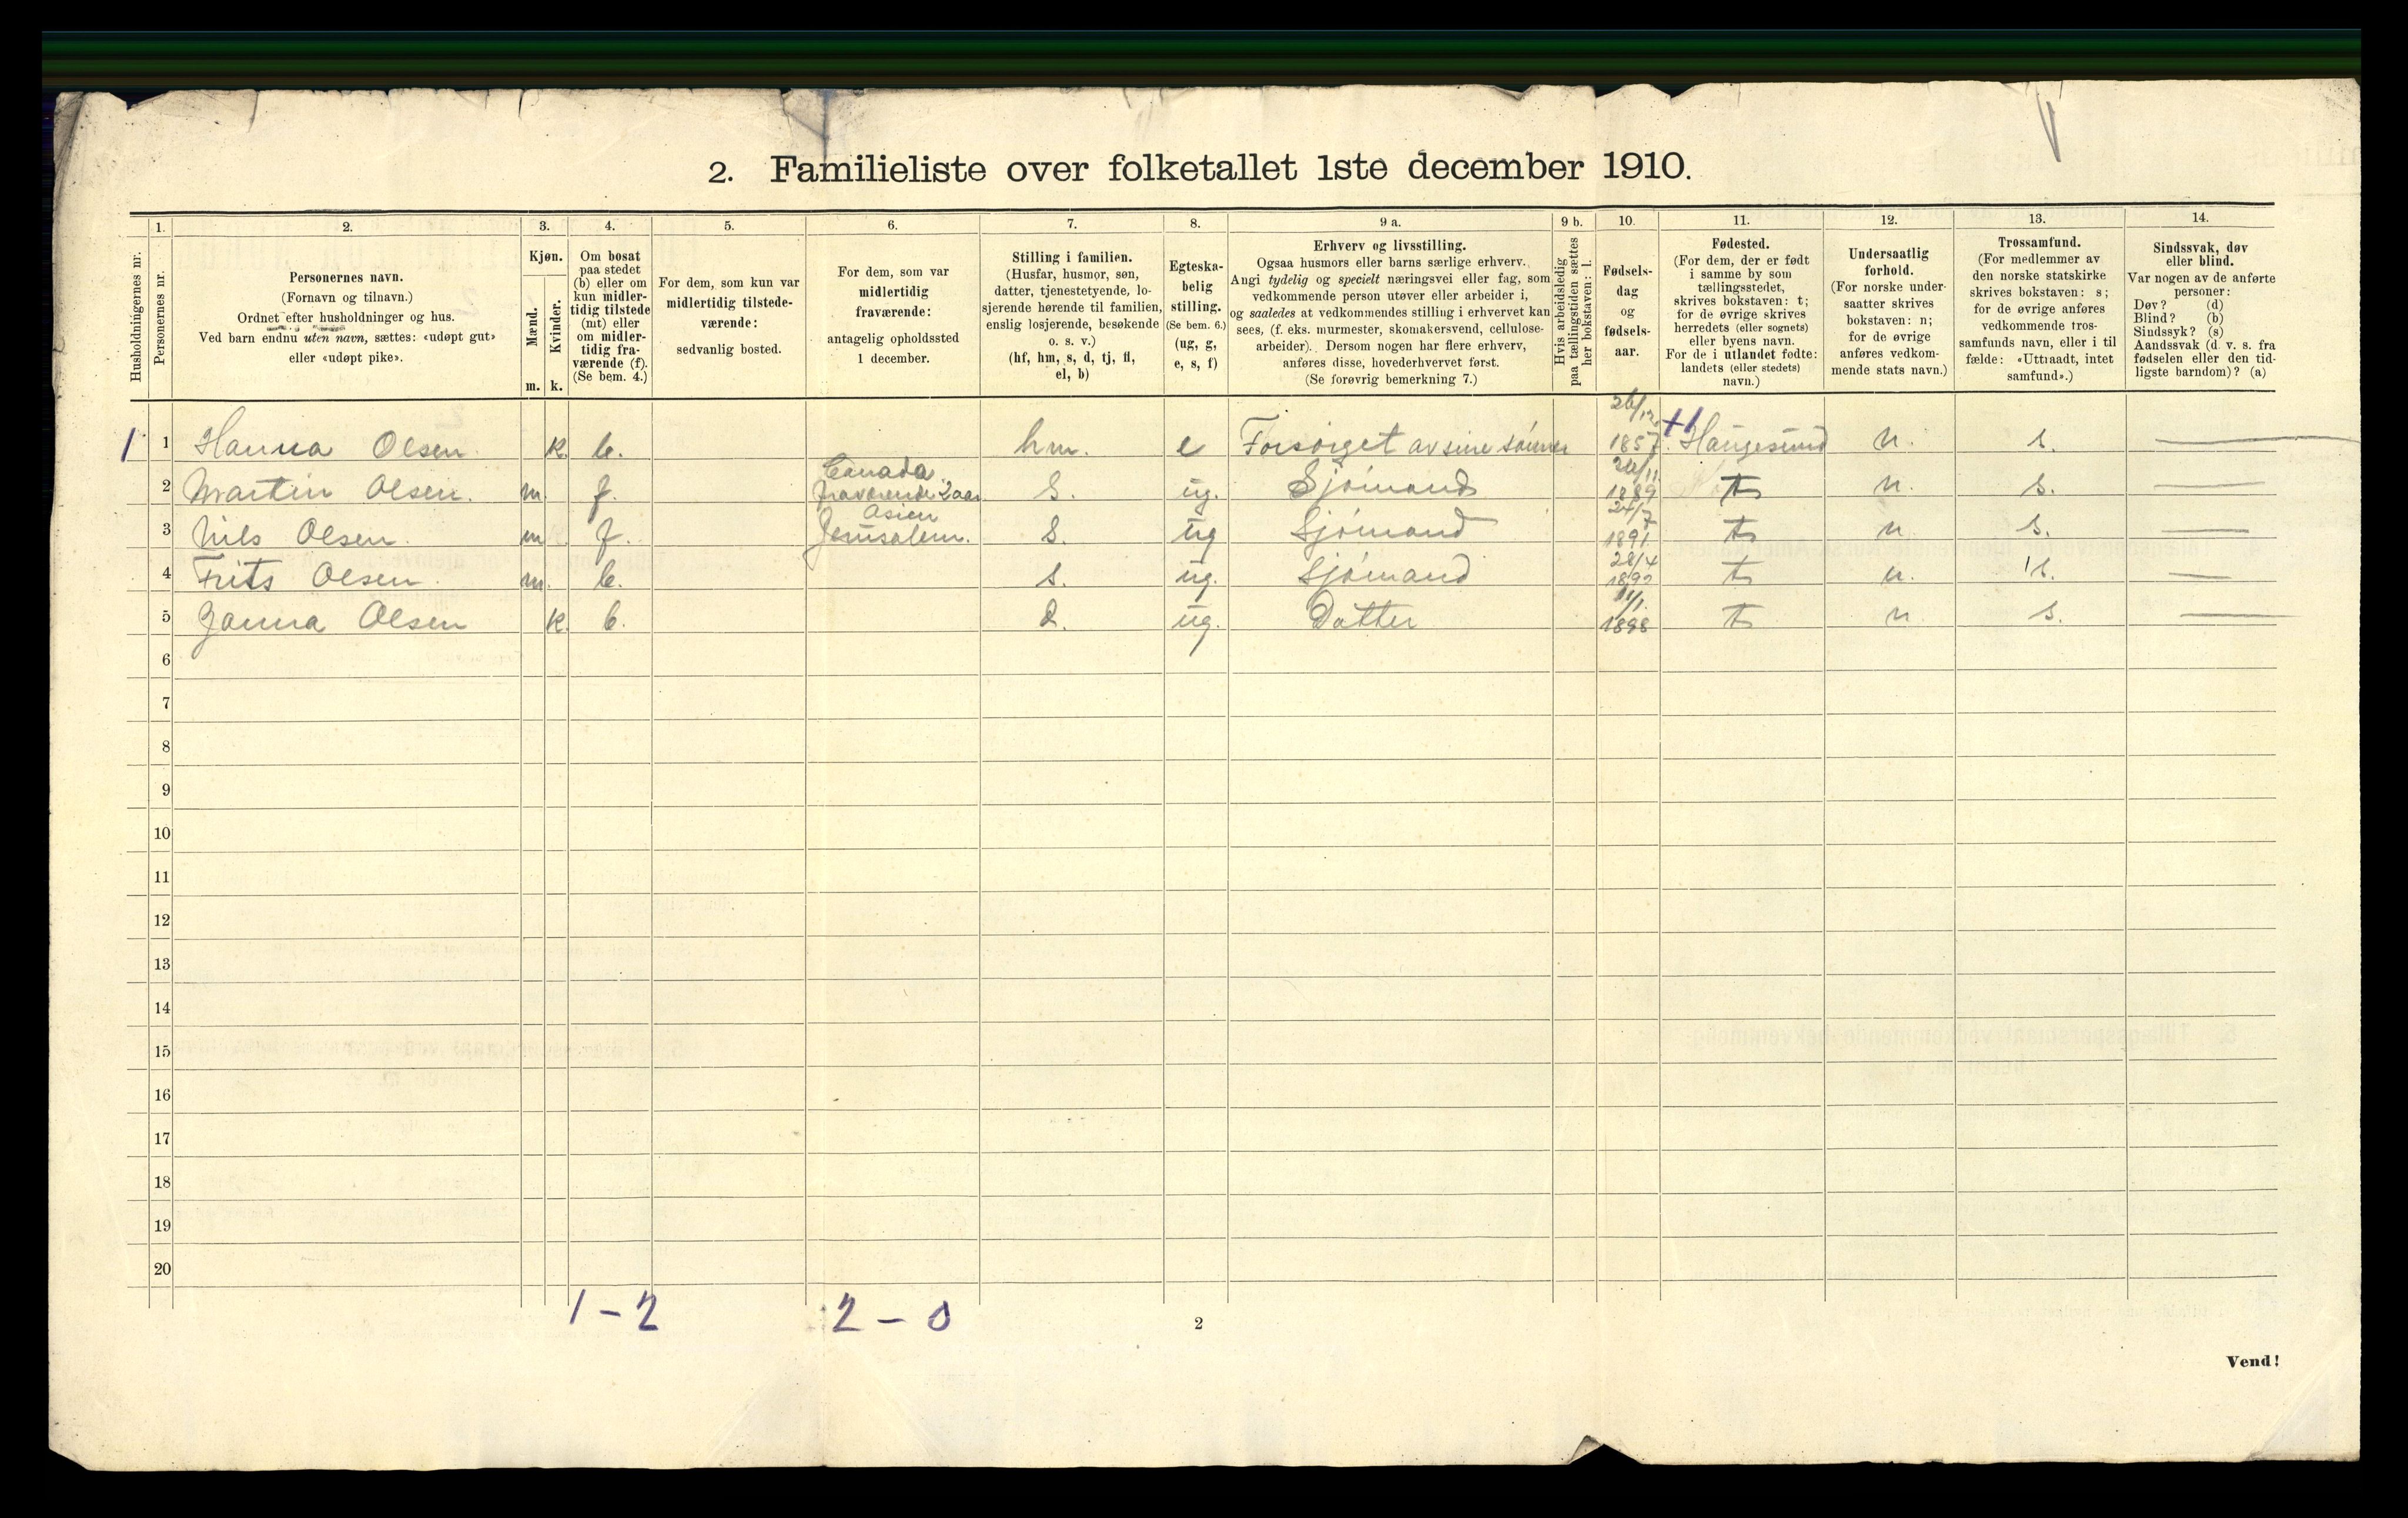 2. Familieliste over folketallet 1ste december 1910.
Husholdningernes nr.
1.
Personernes nr.
2.
Personernes navn.
(Fornavn og tilnavn.)
Ordnet efter husholdninger og hus.
Ved barn endnu uten navn, sættes: «udøpt gut»
eller «udøpt pike».
3.
Kjøn.
Mænd.
m.
Kvinder.
k.
4.
Om bosat
paa stedet
(b) eller om
kun midler-
tidig tilstede
(mt) eller
om midler-
tidig fra-
værende (f).
(Se bem. 4.)
5.
For dem, som kun var
midlertidig tilstede-
værende:
sedvanlig bosted.
6.
For dem, som var
midlertidig
fraværende:
antagelig opholdssted
1 december.
7.
Stilling i familien.
(Husfar, husmor, søn,
datter, tjenestetyende, lo-
sjerende hørende til familien,
enslig losjerende, besøkende
o. s. v.)
(hf, hm, s, d, tj, fl,
el, b)
8.
Egteska-
belig
stilling.
(Se bem. 6.)
(ug, g,
e, s, f)
9 a.
Erhverv og livsstilling.
Ogsaa husmors eller barns særlige erhverv.
Angi tydelig og specielt næringsvei eller fag, som
vedkommende person utøver eller arbeider i,
og saaledes at vedkommendes stilling i erhvervet kan
sees, (f. eks. murmester, skomakersvend, cellulose-
arbeider). Dersom nogen har flere erhverv,
anføres disse, hovederhvervet først.
(Se forøvrig bemerkning 7.)
9 b.
Hvis arbeidsledig
paa tællingstiden sættes
her bokstaven: l.
10.
Fødsels-
dag
og
fødsels-
aar.
11.
Fødested.
(For dem, der er født
i samme by som
tællingsstedet,
skrives bokstaven: t;
for de øvrige skrives
herredets (eller sognets)
eller byens navn.
For de i utlandet fødte:
landets (eller stedets)
navn.)
12.
Undersaatlig
forhold.
(For norske under-
saatter skrives
bokstaven: n;
for de øvrige
anføres vedkom-
mende stats navn.)
13.
Trossamfund.
(For medlemmer av
den norske statskirke
skrives bokstaven: s;
for de øvrige anføres
vedkommende tros-
samfunds navn, eller i til
fælde: «Uttraadt, intet
samfund».)
14.
Sindssvak, døv
eller blind.
Var nogen av de anførte
personer:
Døv? (d)
Blind? (b)
Sindssyk? (s)
Aandssvak (d. v. s. fra
fødselen eller den tid-
ligste barndom)? (a)
1 1 Hanna Olsen. k. b. hm. e Forsørget av sine sønner 26/12 1857. t1 Haugesund n. s.
2 Martin Olsen. m. f. Canada fraværende 2 aar s. ug. Sjømand 1889 t n. s.
3 Nils Olsen. m f. Asien Jerusalem. s. ug Sjømand 24/7 1891. t n s.
4 Frits Olsen. m. b. s. ug. Sjømand 28/4 t n. s.
5 Janna Olsen k. b. d. ug. Datter 1898 t n s.
6
7
8
9
10
11
12
13
14
15
16
17
18
19
20
1 – 2 2 – 0
2
Vend!